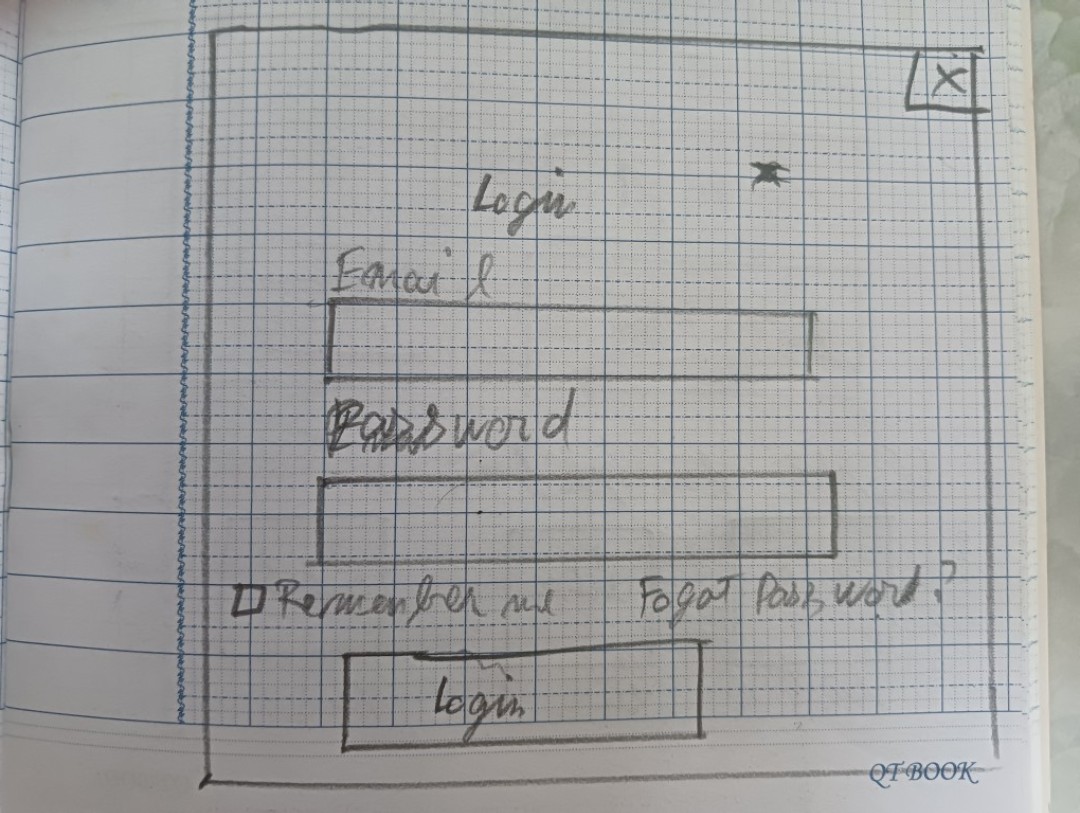 X
Login
Email
Password
Remember me Fogot Password?
Login
QT BOOK